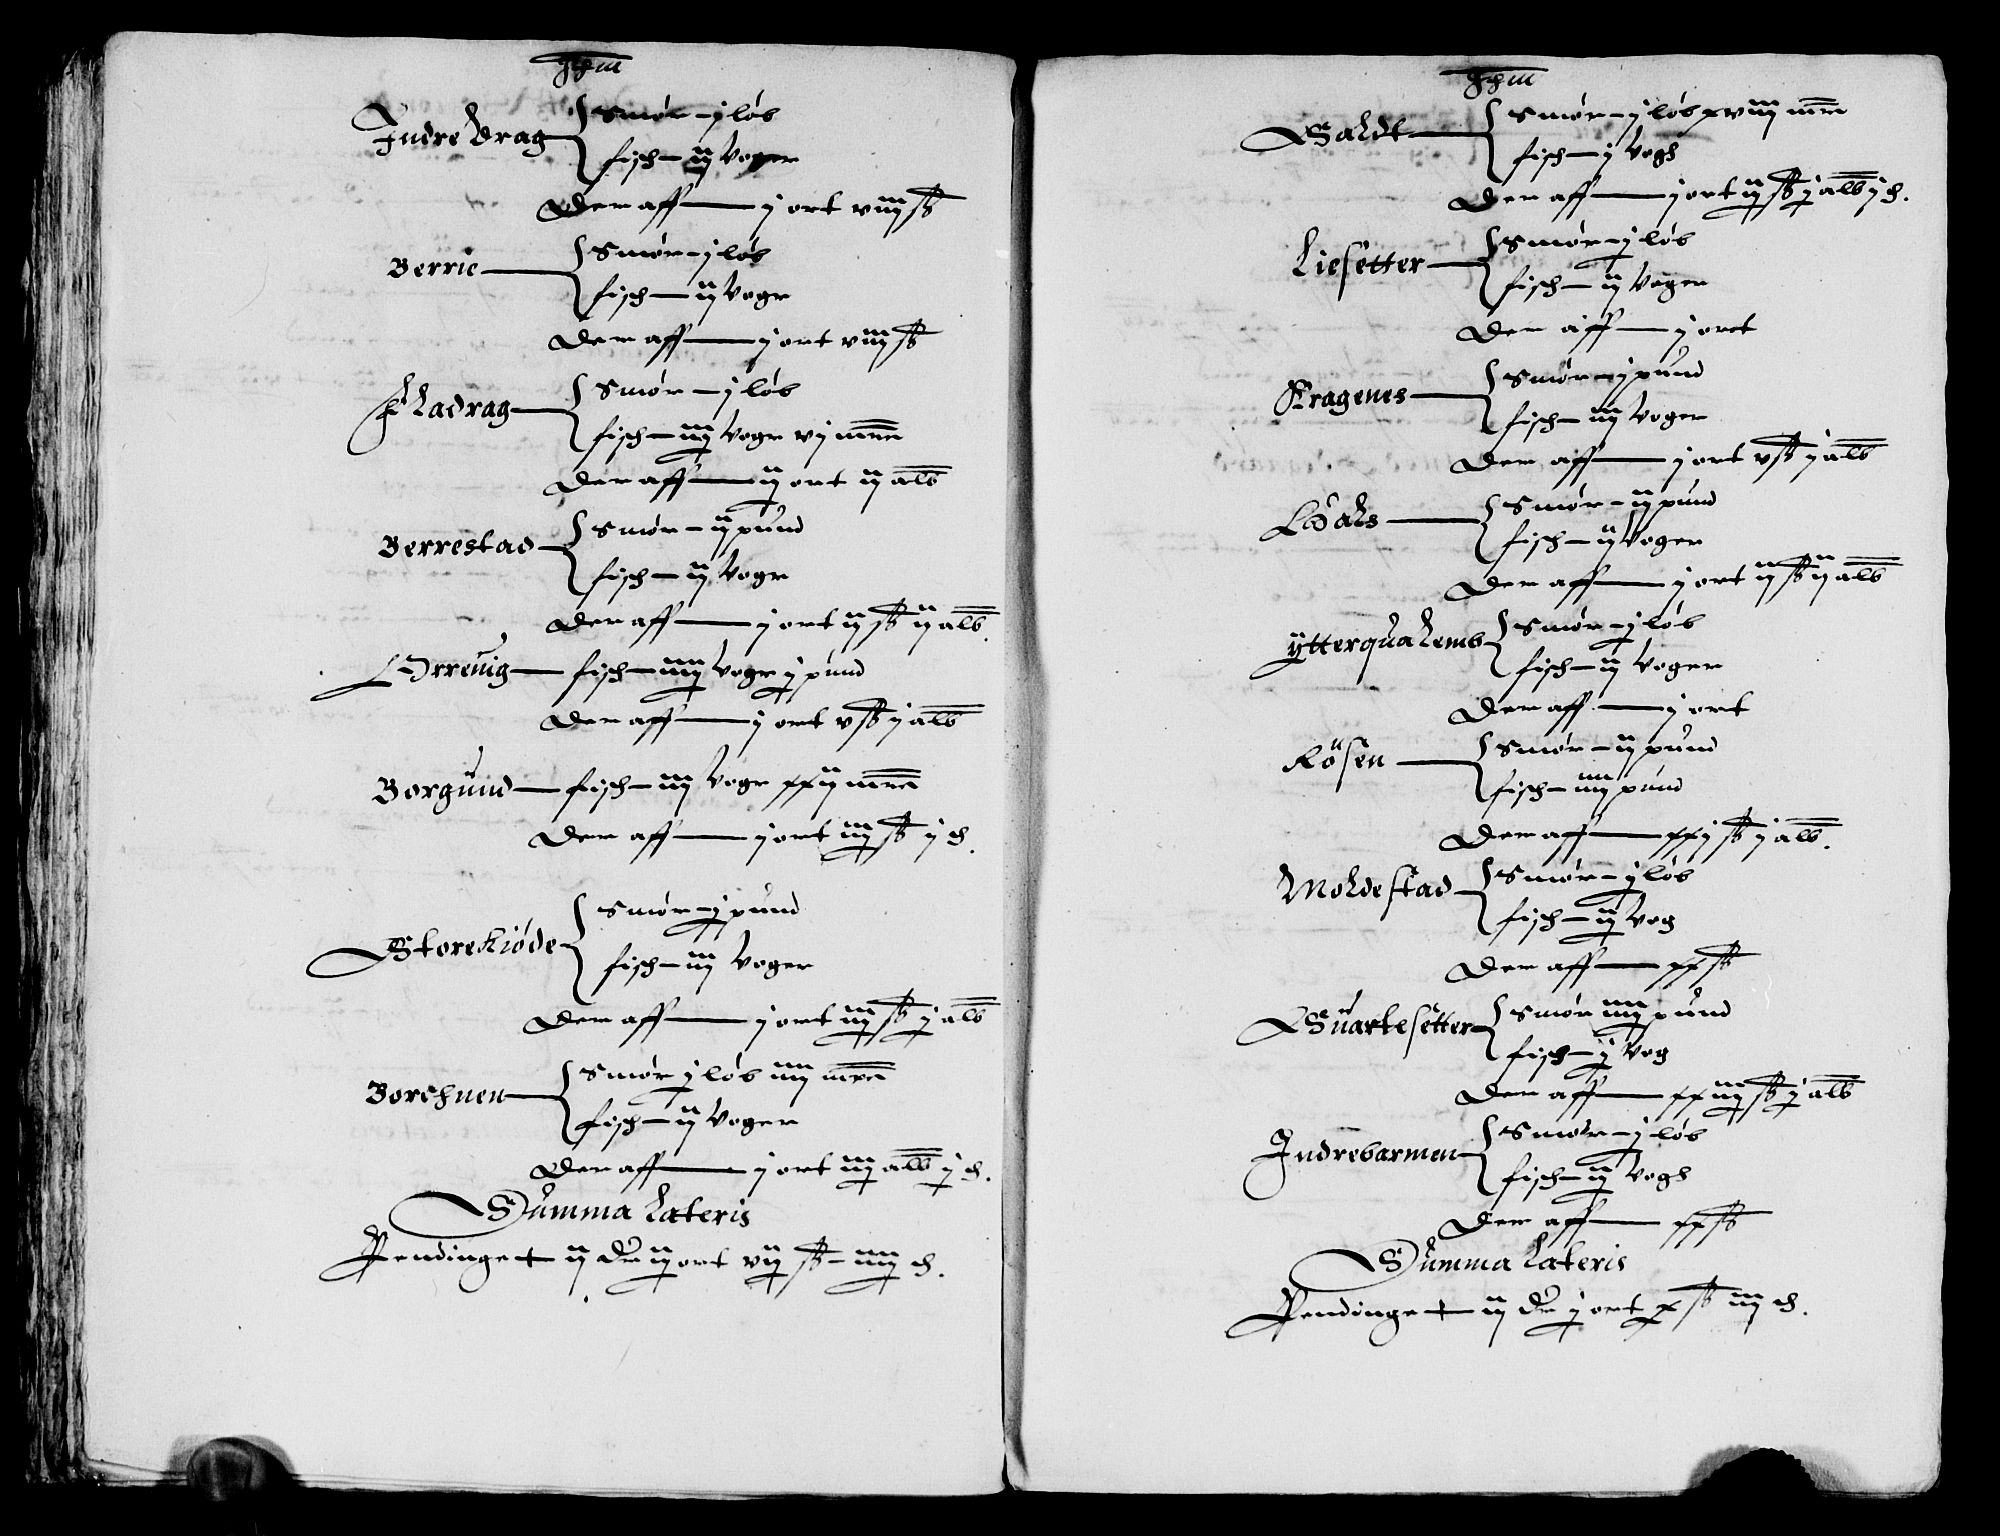 Jhm
Indre Drag
Smør – j løb
fisch – iij Voger
Der aff j ort viij ß
Berrie
Smør – j løb
fisch – ij Vogr
Der aff j ort viij ß
Fladrag
Smør – j løb
fisch – iiij Vogr vj mrc
Der aff ij ort ij alb
Berrestad
Smør – ij pund
fisch – iij Vogr
Der aff j ort ij ß ij alb.
Orrevig fisch – iiij Vogr j pund
Der aff j ort v ß j alb
Borgund fisch – iiij Vogr xxij mrc
Der aff j ort iiij ß j d.
Storekiøde
Smør – j pund
fisch – iiij Voger
Der aff j ort iiij ß j alb
Borchnen
Smør j løb iiij mrc
fisch – ij Voger
Der aff j ort iij alb j d.
Summa Lateris
Pendinge + ij Dr iij ort vij ß – iiij d.
Jhm
Saldt
Smør – j løb xviij mrc
fisch – j Vogh
Der aff j ort ij ß j alb j d.
Liesetter
Smør – j løb
fisch – ij Voger
Der aff j ort
Kragenes
Smør – j pund
fisch – iij Voger
Der aff j ort v ß j alb
Smør – ij pund
fisch – ij Voger
Der aff j ort ij ß ij alb
Ytterqualemb
Smør – j løb
fisch – ij Voger
Der aff j ort
Røsen
Smør – ij pund
fisch – iiij pund
Der aff xxj ß j alb.
Moldestad
Smør – j løb
fisch – ij Vog
Der aff xx ß
Suartesetter
Smør iiij pund
fisch – j Vog
Der aff xxiij ß j alb
Indrebarmen
Smør – j løb
fisch – ij Vogh
Der aff xx ß
Summa Lateris
Pendinge + ij Dr j ort x ß iiij d.